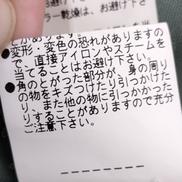 ラー乾燥は、お避け下
さい。
変形・変色の恐れがありますの
で、直接アイロンやスチームを
当てることはお避け下さい。
角のとがった部分が、身の周り
の物をキズつけたり引っかけた
り、また他の物に引っかかった
りすることがありますので充分
ご注意下さい。